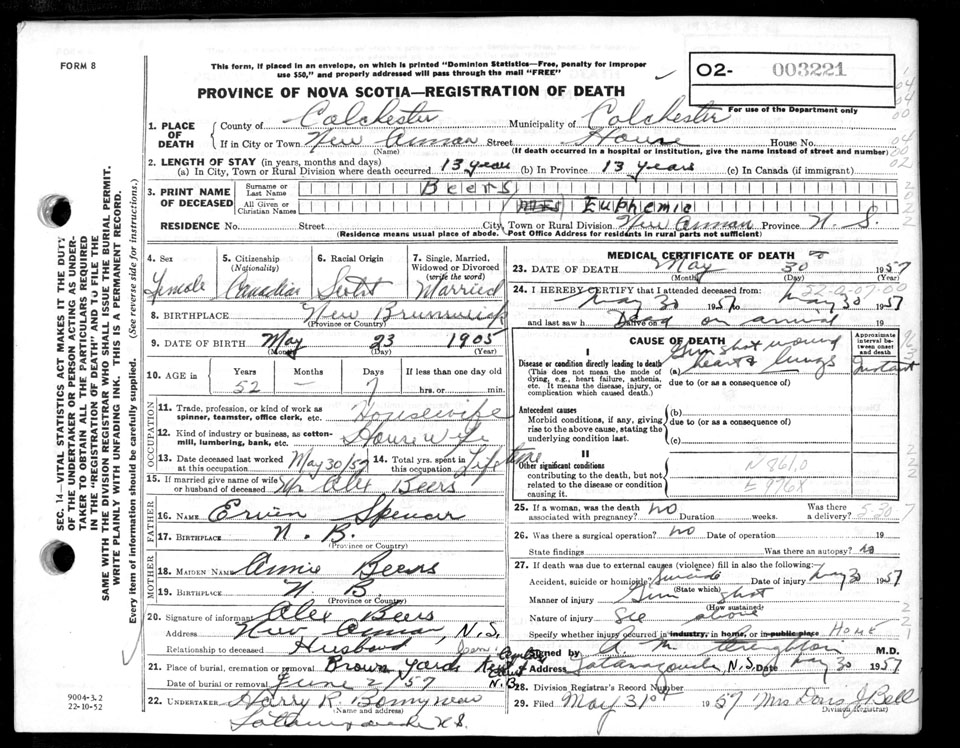 FORM 8
This form, if placed in an envelope, on which is printed "Dominion Statistics—Free, penalty for improper
use $50," and properly addressed will pass through the mail "FREE"
O2- 003221
For use of the Department only
PROVINCE OF NOVA SCOTIA—REGISTRATION OF DEATH
1. PLACE OF DEATH County of Colchester Municipality of Colchester
If in City or Town New Annan (Name) Street House House No.
(If death occurred in a hospital or institution, give the name instead of street and number)
2. LENGTH OF STAY (in years, months and days)
(a) In City, Town or Rural Division where death occurred 13 years (b) In Province 13 years (c) In Canada (if immigrant)
3. PRINT NAME OF DECEASED
Surname or Last Name Beers
All Given or Christian Names Euphemia
RESIDENCE No. Street City, Town or Rural Division New Annan Province N. S.
(Residence means usual place of abode. Post Office Address for residents in rural parts not sufficient)
4. Sex Female
5. Citizenship (Nationality) Canadian
6. Racial Origin
7. Single, Married, Widowed or Divorced (write the word) Married
8. BIRTHPLACE New Brunswick
(Province or Country)
9. DATE OF BIRTH May 23 1905
(Month) (Day) (Year)
10. AGE in Years Months Days If less than one day old
52 — 7 hrs. or min.
OCCUPATION
11. Trade, profession, or kind of work as spinner, teamster, office clerk, etc. Housewife
12. Kind of industry or business, as cotton-mill, lumbering, bank, etc. Housewife
13. Date deceased last worked at this occupation May 30/57 14. Total yrs. spent in this occupation Lifetime
15. If married give name of wife or husband of deceased Mr Alex Beers
FATHER
16. NAME Ervin Spencer
17. BIRTHPLACE N. B.
(Province or Country)
MOTHER
18. MAIDEN NAME Annie Beers
19. BIRTHPLACE N. B.
(Province or Country)
20. Signature of informant Alex Beers
Address New Annan, N.S.
Relationship to deceased Husband
21. Place of burial, cremation or removal Brown Yards N.B.
Date of burial or removal June 2/57
22. UNDERTAKER Harry R.
(Name and address)
N.S.
9004-3.2
22-10-52
MEDICAL CERTIFICATE OF DEATH
23. DATE OF DEATH May 30 1957
(Month) (Day) (Year)
24. I HEREBY CERTIFY that I attended deceased from:
May 30 1957 to May 30 1957
and last saw h alive on Dead on arrival 19
CAUSE OF DEATH
Approximate interval between onset and death
I
Disease or condition directly leading to death (a) Gun shot wound heart & lungs Instant
(This does not mean the mode of dying, e.g., heart failure, asthenia, etc. It means the disease, injury, or complication which caused death.)
due to (or as a consequence of)
Antecedent causes
Morbid conditions, if any, giving rise to the above cause, stating the underlying condition last.
(b)
due to (or as a consequence of)
(c)
II
Other significant conditions
contributing to the death, but not related to the disease or condition causing it.
N 861.0
E 976X
25. If a woman, was the death associated with pregnancy? NO Duration weeks. Was there a delivery?
26. Was there a surgical operation? no Date of operation 19
State findings Was there an autopsy? no
27. If death was due to external causes (violence) fill in also the following:
Accident, suicide or homicide Suicide Date of injury May 30 1957
(State which)
Manner of injury Gun shot
(How sustained)
Nature of injury See above
Specify whether injury occurred in industry, in home, or in public place HOME
Signed by M.D.
Address Tatamagouche, N.S. Date May 30 1957
28. Division Registrar's Record Number
29. Filed May 31st 1957 Mrs Doris J Bell
(Division Registrar)
SEC. 14—VITAL STATISTICS ACT MAKES IT THE DUTY
OF THE UNDERTAKER OR PERSON ACTING AS UNDER-
TAKER TO OBTAIN ALL THE PARTICULARS REQUIRED
IN THE "REGISTRATION OF DEATH" AND TO FILE THE
SAME WITH THE DIVISION REGISTRAR WHO SHALL ISSUE THE BURIAL PERMIT.
WRITE PLAINLY WITH UNFADING INK. THIS IS A PERMANENT RECORD.
Every item of information should be carefully supplied. (See reverse side for instructions.)